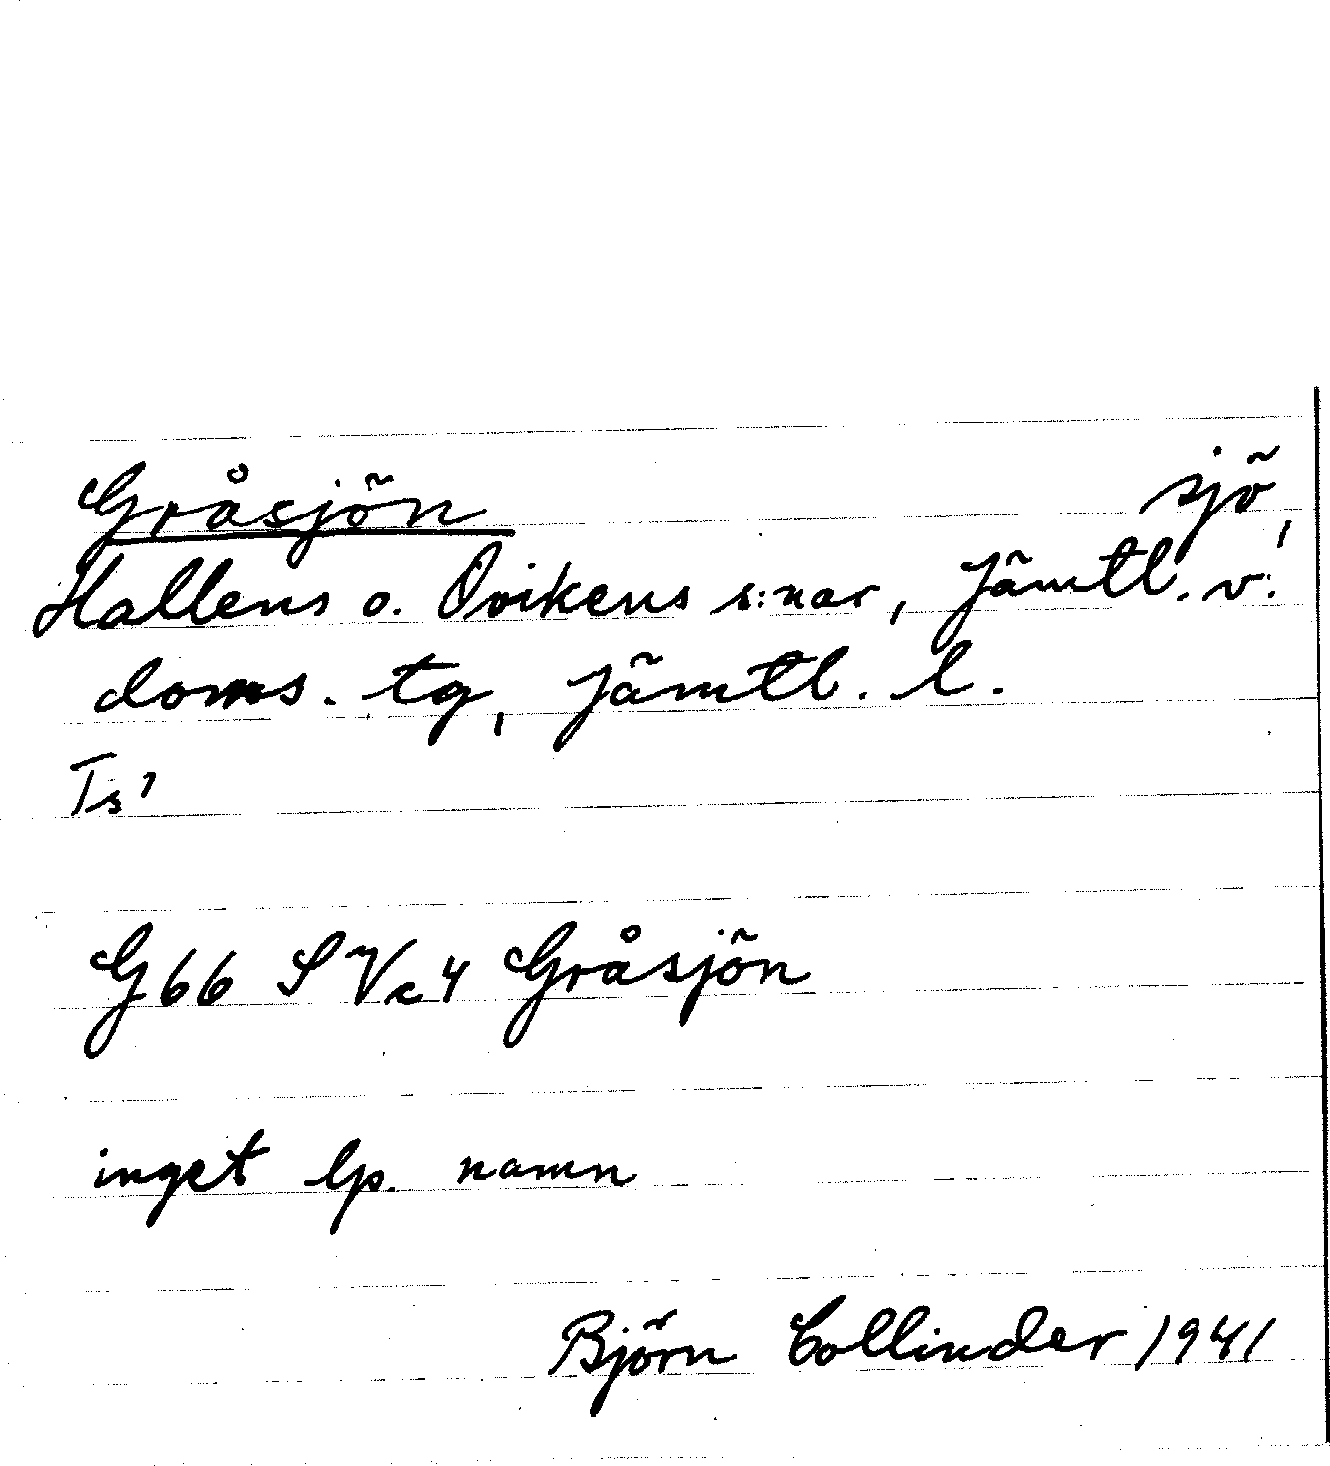 Gråsjön sjö,
Hallens o. Ovikens s:nar, Jämtl. v.
doms. tg, Jämtl. l.
G66 S V c 4 Gråsjön
inget lp. namn
Björn Collinder 1941